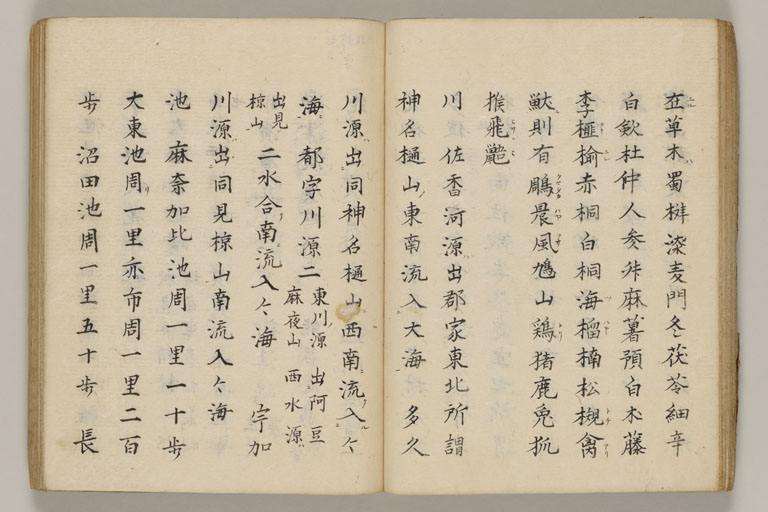 在草木蜀椒漆麦門冬茯苓細辛
白歛杜仲人参舛麻薯預白朮藤
李榧楡赤桐白桐海榴楠松槻禽
獣則有鵰晨風鳩山鶏猪鹿兎狐
猴飛鼯
川佐香河源出郡家東北所謂
神名樋山東南流入大海多久
川源出同神名樋山西南流入々
海都字川源二東川源出阿豆麻夜山西水源
出見椋山二水合南流入々海宇加
川源出同見椋山南流入々海
池麻奈加比池周一里一十歩
大東池周一里亦市周一里二百
歩沼田池周一里五十歩長